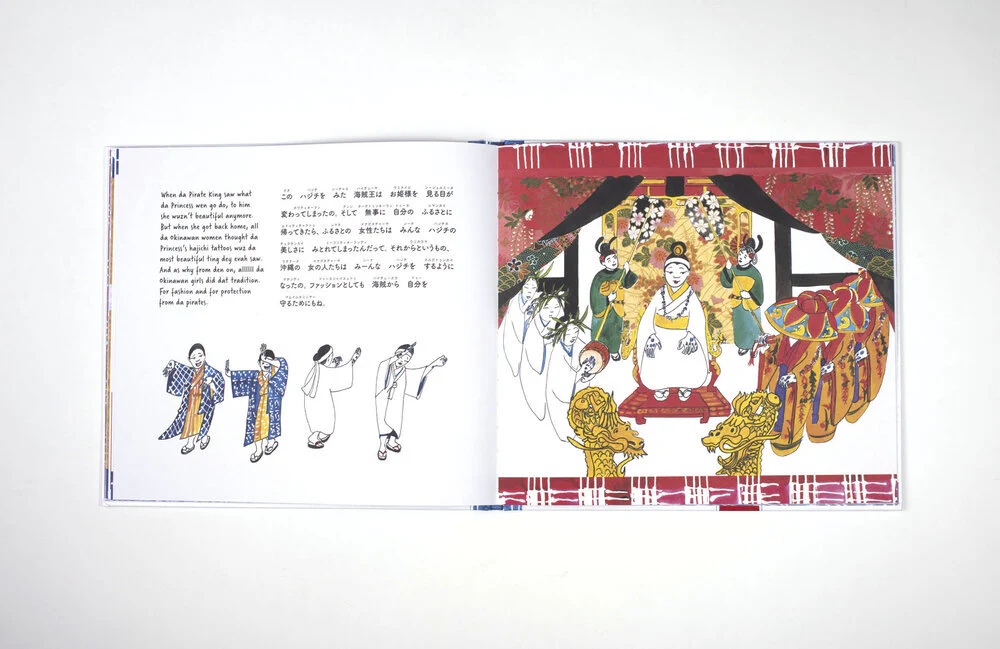 When da Pirate King saw what
da Princess wen go do, to him
she wuzn't beautiful anymore.
But when she got back home, all
da Okinawan women thought da
Princess's hajichi tattoos wuz da
most beautiful ting dey evah saw.
And as why from den on, allllll da
Okinawan girls did dat tradition.
For fashion and for protection
from da pirates.
この ハジチを みた 海賊王は お姫様を 見る目が
変わってしまったの。そして 無事に 自分の ふるさとに
帰ってきたら、ふるさとの 女性たちは みんな ハジチの
美しさに みとれてしまったんだって。それからというもの、
沖縄の 女の人たちは みーんな ハジチを するように
なったの。ファッションとしても 海賊から 自分を
守るためにもね。